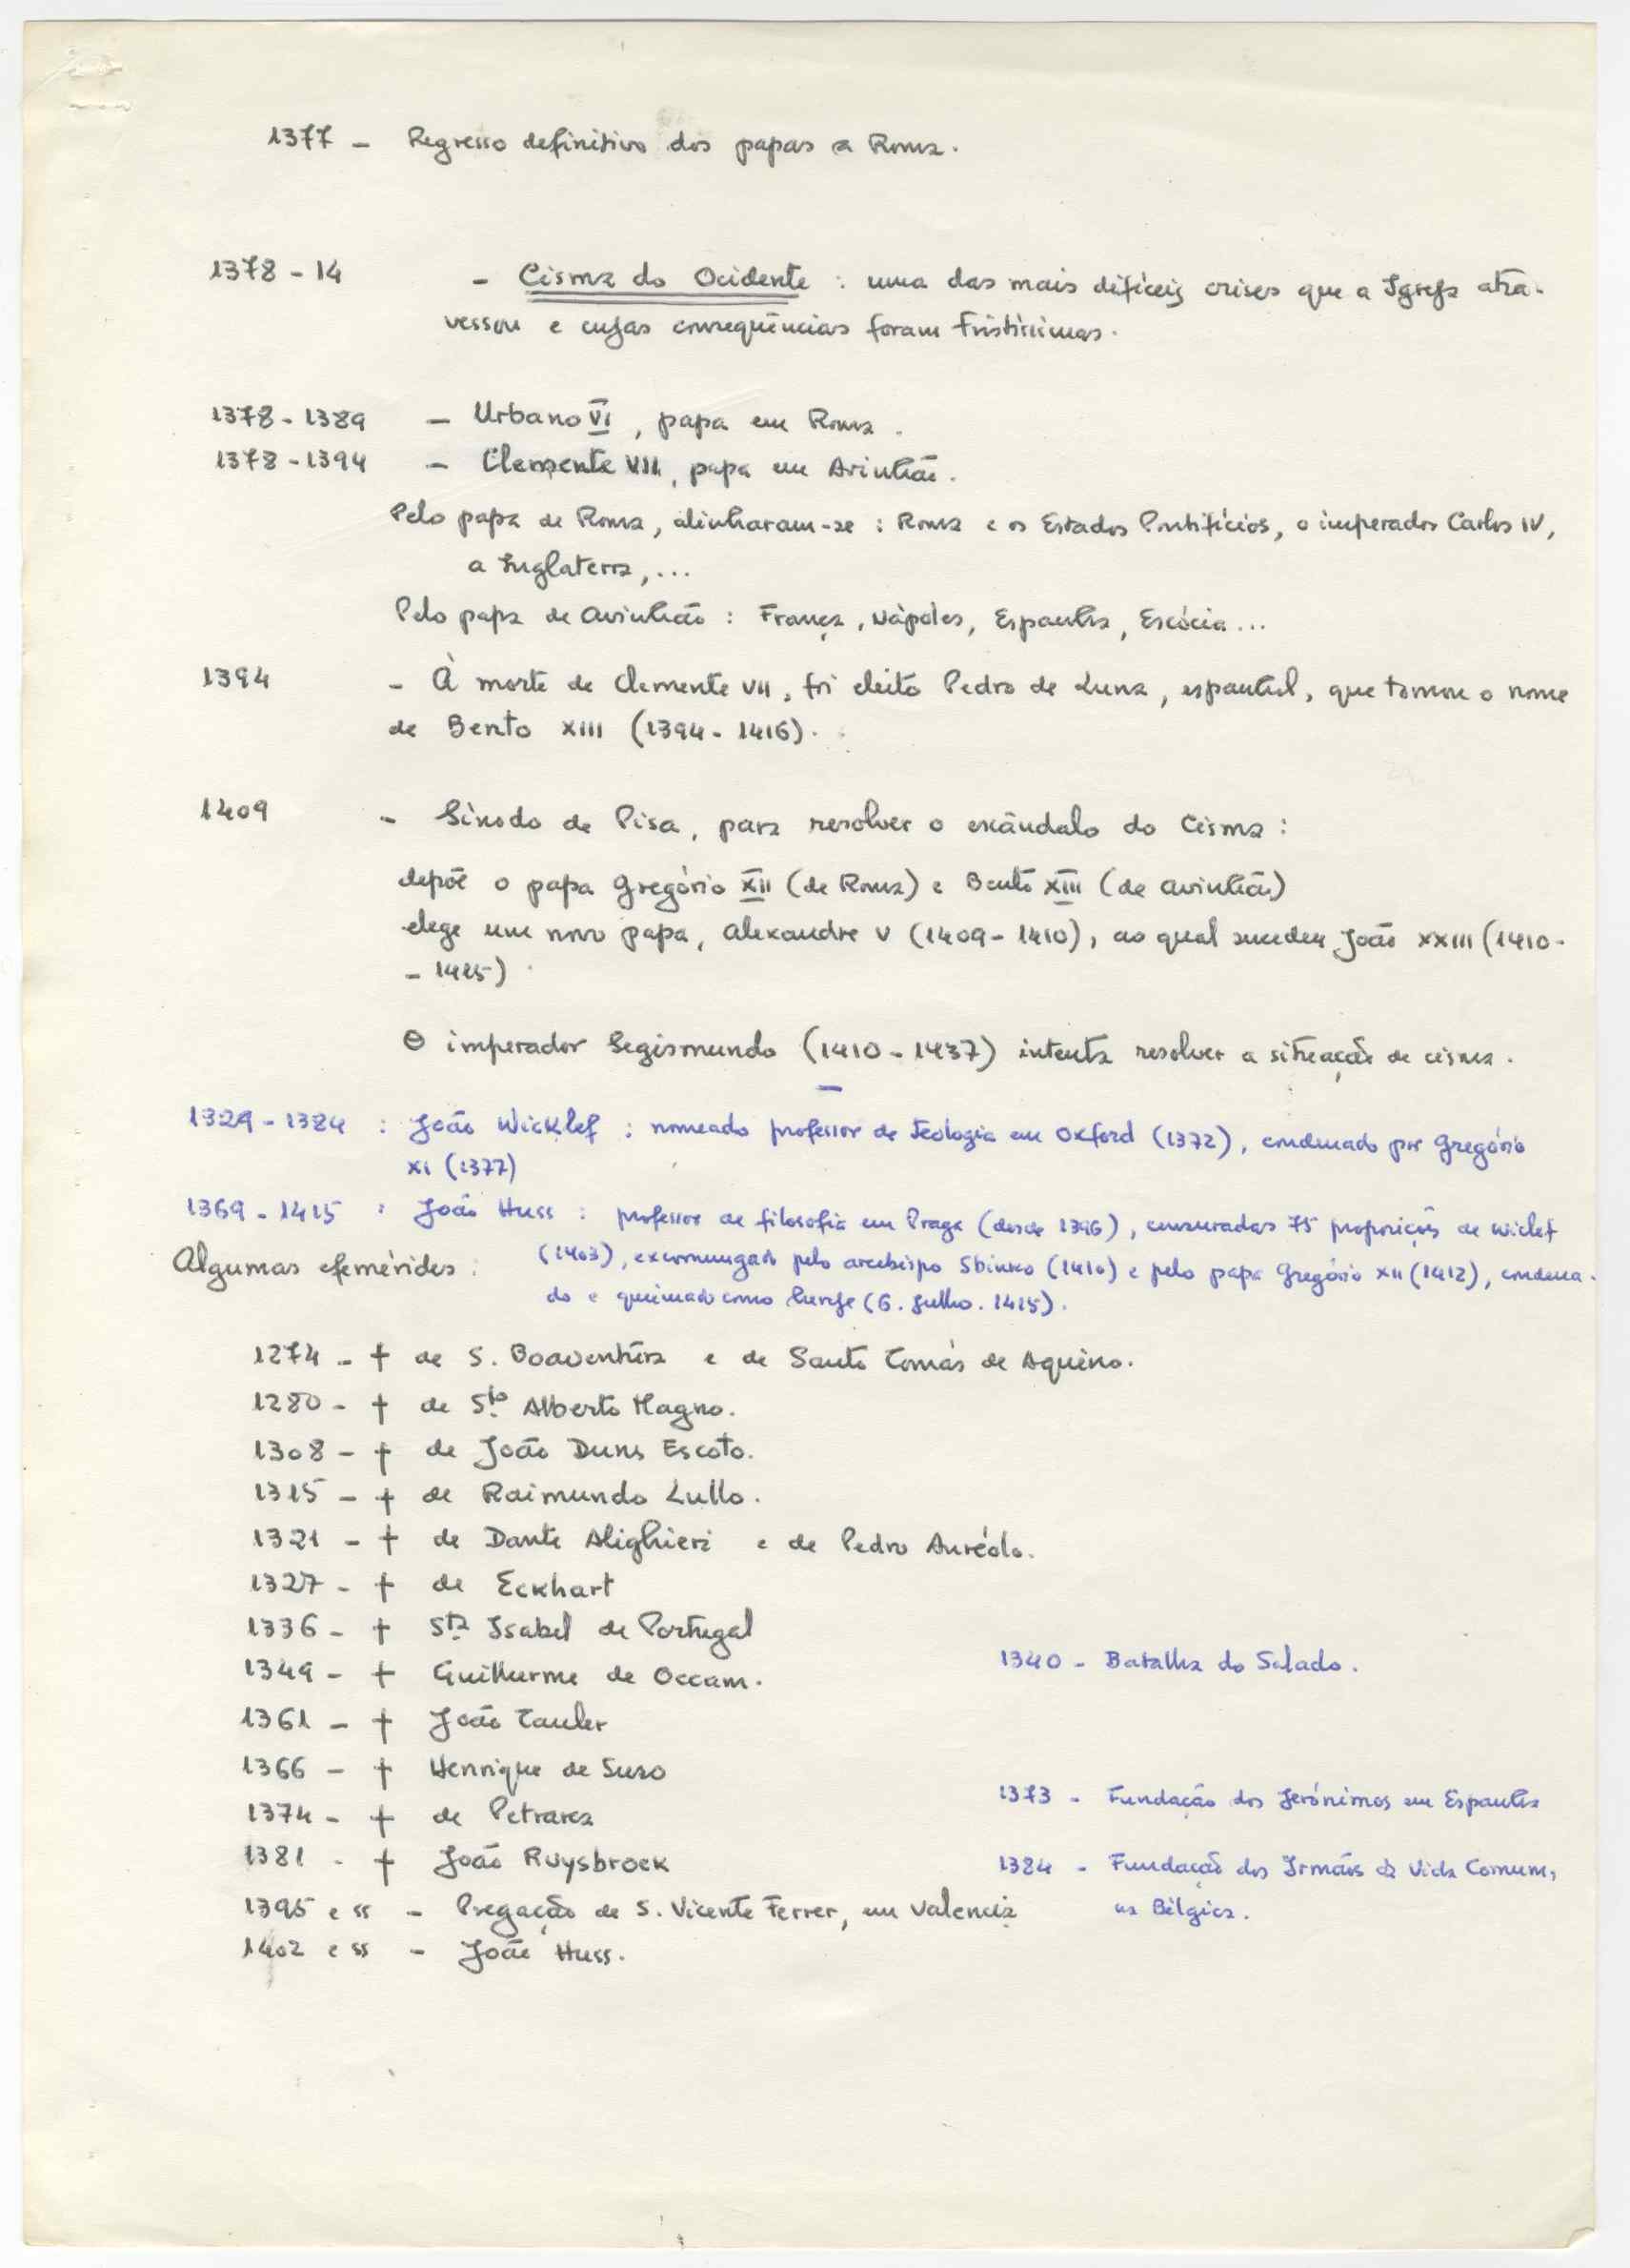 1377 - Regresso definitivo dos papas a Roma.
1378 - 14 - Cisma do Ocidente : uma das mais difíceis crises que a Igreja atra-
vessou e cujas consequências foram tristíssimas.
1378 - 1389 - Urbano VI, papa em Roma.
1378 - 1394 - Clemente VII, papa em Avinhão.
Pelo papa de Roma, alinharam-se : Roma e os Estados Pontifícios, o imperador Carlos IV,
a Inglaterra,...
Pelo papa de Avinhão : França, Nápoles, Espanha, Escócia...
1394 - À morte de Clemente VII, foi eleito Pedro de Luna, espanhol, que tomou o nome
de Bento XIII (1394 - 1416).
1409 - Sínodo de Pisa, para resolver o escândalo do Cisma :
depõe o papa Gregório XII (de Roma) e Bento XIII (de Avinhão)
elege um novo papa, Alexandre V (1409 - 1410), ao qual sucedeu João XXIII (1410 -
- 1415)
O imperador Segismundo (1410 - 1437) intenta resolver a situação de cisma.
1329 - 1384 : João Wicklef : nomeado professor de Teologia em Oxford (1372), condenado por Gregório
XI (1377)
1369 - 1415 : João Huss : professor de filosofia em Praga (desde 1396), censuradas 75 proposições de Wiclef
(1403), excomungado pelo arcebispo Sbinko (1410) e pelo papa Gregório XII (1412), condena-
do e queimado como herege (6. Julho. 1415).
Algumas efemérides :
1274 - † de S. Boaventura e de Santo Tomás de Aquino.
1280 - † de Sto. Alberto Magno.
1308 - † de João Duns Escoto.
1315 - † de Raimundo Lullo.
1321 - † de Dante Alighieri e de Pedro Auréolo.
1327 - † de Eckhart
1336 - † Sta. Isabel de Portugal
1340 - Batalha do Salado.
1349 - † Guilherme de Occam.
1361 - † João Tauler
1366 - † Henrique de Suso
1373 - Fundação dos Jerónimos em Espanha
1374 - † de Petrarca
1381 - † João Ruysbroek
1384 - Fundação dos Irmãos da Vida Comum,
na Bélgica.
1395 e ss - Pregação de S. Vicente Ferrer, em Valencia
1402 e ss - João Huss.